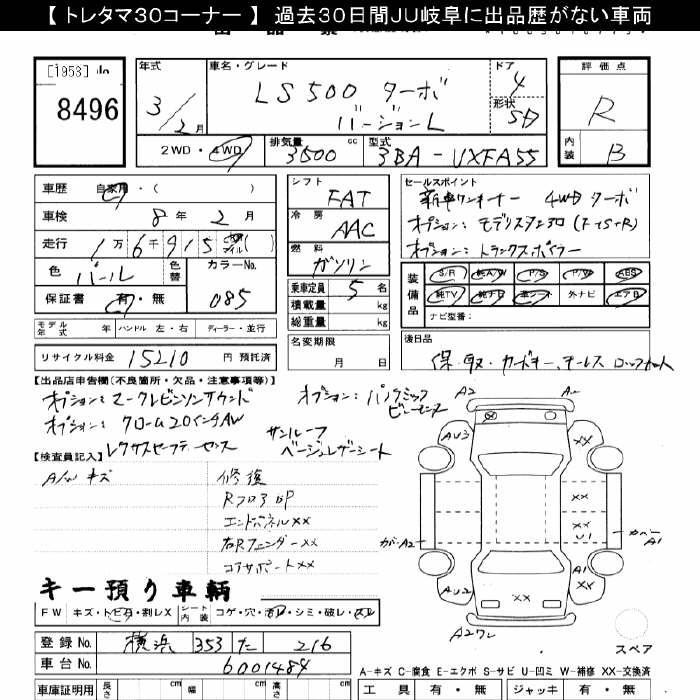 【 トレタマ30コーナー 】 過去30日間JU岐阜に出品歴がない車両
[1953]
8496
年式
3/2月
車名・グレード
LS500 ターボ
バージョンL
ドア
4
形状
SD
評価点
R
内装
B
2WD・4WD
排気量
3500 cc
型式
3BA-VXFA55
車歴 自家用・( )
車検 8年 2月
走行 1万6千915
色 パール
色替
カラーNo.
085
保証書 有・無
モデル年式 年 ハンドル 左・右 ディーラー・並行
リサイクル料金 15210 円 預託済
シフト
FAT
冷房
AAC
燃料
ガソリン
乗車定員 5 名
積載量 kg
総重量 kg
名変期限
月 日
セールスポイント
新車ワンオーナー 4WD ターボ
オプション: モデリスタエアロ (F・S・R)
オプション: トランクスポイラー
装備品
S/R 純A/W P/S P/W ABS
純TV 純ナビ 革シート 外ナビ エアB
ナビ型番:
後日品
保・取・カードキー
【出品店申告欄(不良箇所・欠品・注意事項等)】
オプション: マークレビンソンサウンド
オプション: クローム20インチAW
レクサスセーフティセンス
オプション: パノラミックビューモニタ
サンルーフ
ベージュレザーシート
【検査員記入】
A/W キズ
修復
Rフロア
エンドパネルXX
右RフェンダーXX
コアサポートXX
キー預り車輌
FW キズ・トビ石・割レX シート内装 コゲ・穴・スレ・シミ・破レ
登録No. 横浜 353 た 216
車台No. 6001484
車庫証明用 長さ cm 幅 cm cm
A2
AU3
XX
ガバーA2
XX
XX
U1
カバーA1
A1
AU2
XX
XX
A2ワレ
スペア
A-キズ C-腐食 E-エクボ S-サビ U-凹ミ W-補修 XX-交換済
工具 有・無 ジャッキ 有・無